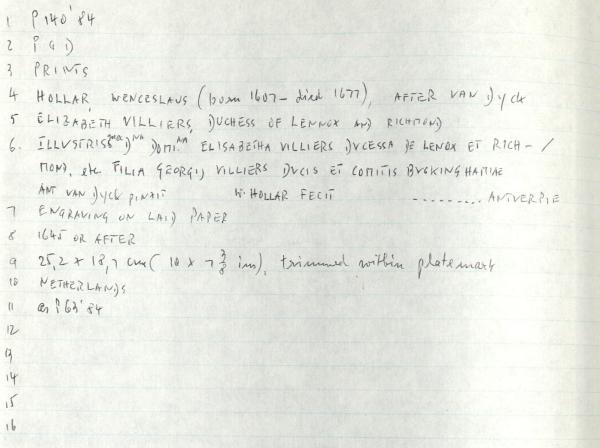 1 P 140'84
2 P G D
3 PRINTS
4 HOLLAR, WENCESLAUS (born 1607 - died 1677), AFTER VAN DYCK
5 ELIZABETH VILLIERS, DUCHESS OF LENNOX AND RICHMOND
6. ILLVSTRISS DNA DOMI.NA ELISABETHA VILLIERS DVCESSA DE LENOX ET RICH- /
MOND, etc FILIA GEORGIJ VILLIERS DVCIS ET COMITIS BVCKINGHAMIAE
ANT VAN DYCK PINXIT W. HOLLAR FECIT ......... ANTVERPIE
7 ENGRAVING ON LAID PAPER
8 1645 OR AFTER
9 25,2 x 18,7 cm (10 x 7 3/8 ins), trimmed within platemark
10 NETHERLANDS
11 as P 63'84
12
13
14
15
16